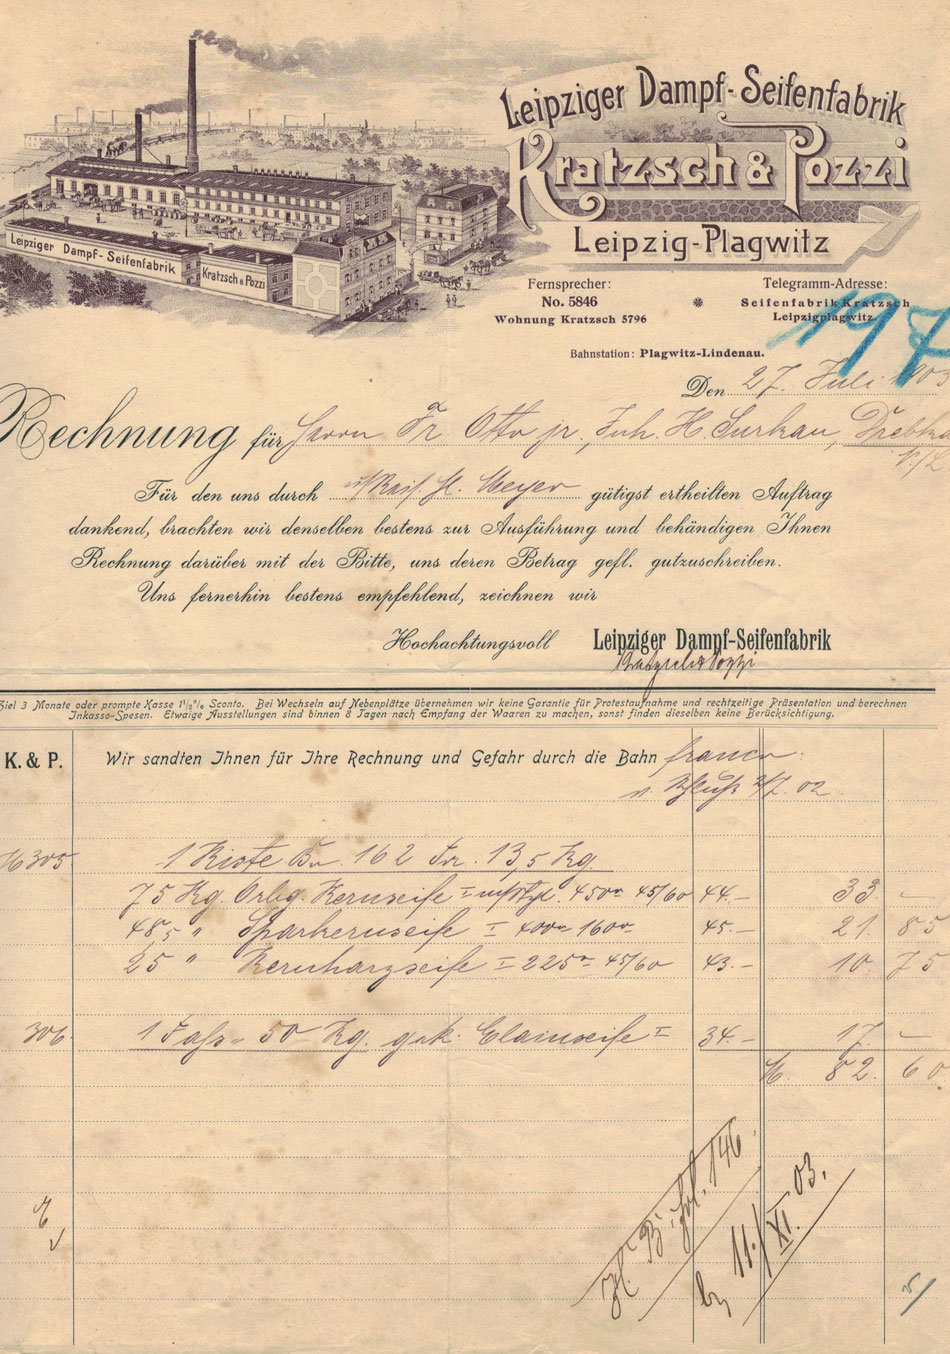 Leipziger Dampf-Seifenfabrik
Kratzsch & Pozzi
Leipzig-Plagwitz
Leipziger Dampf-Seifenfabrik
Kratzsch & Pozzi
Fernsprecher:
No. 5846
Wohnung Kratzsch 5796
Telegramm-Adresse:
Seifenfabrik Kratzsch
Leipzigplagwitz.
197
Bahnstation: Plagwitz-Lindenau.
Den 27. Juli 1903
Rechnung für Herrn Fr. Otto jr., Inh. H. Surkau,
Für den uns durch H. Meyer gütigst ertheilten Auftrag
dankend, brachten wir denselben bestens zur Ausführung und behändigen Ihnen
Rechnung darüber mit der Bitte, uns deren Betrag gefl. gutzuschreiben.
Uns fernerhin bestens empfehlend, zeichnen wir
Hochachtungsvoll Leipziger Dampf-Seifenfabrik
Kratzsch & Pozzi
Ziel 3 Monate oder prompte Kasse 1½% Sconto. Bei Wechseln auf Nebenplätze übernehmen wir keine Garantie für Protestaufnahme und rechtzeitige Präsentation und berechnen
Inkasso-Spesen. Etwaige Ausstellungen sind binnen 8 Tagen nach Empfang der Waaren zu machen, sonst finden dieselben keine Berücksichtigung.
K. & P. Wir sandten Ihnen für Ihre Rechnung und Gefahr durch die Bahn franco
n. Schluß 2/7. 02
305 1 Kiste Br. 162 Tr. 13,5 Kg.
75 Kg. Orbg. Kernseife I 45/60 44.- 33 -
48,5 " Sparkernseife I 45.- 21. 85
25 " Kernharzseife I 45/60 43.- 10. 75
306 1 Fass - 50 Kg. gek. Elainseife I 34.- 17. -
M. 82. 60
B. fol. 146
11./XI. 03.